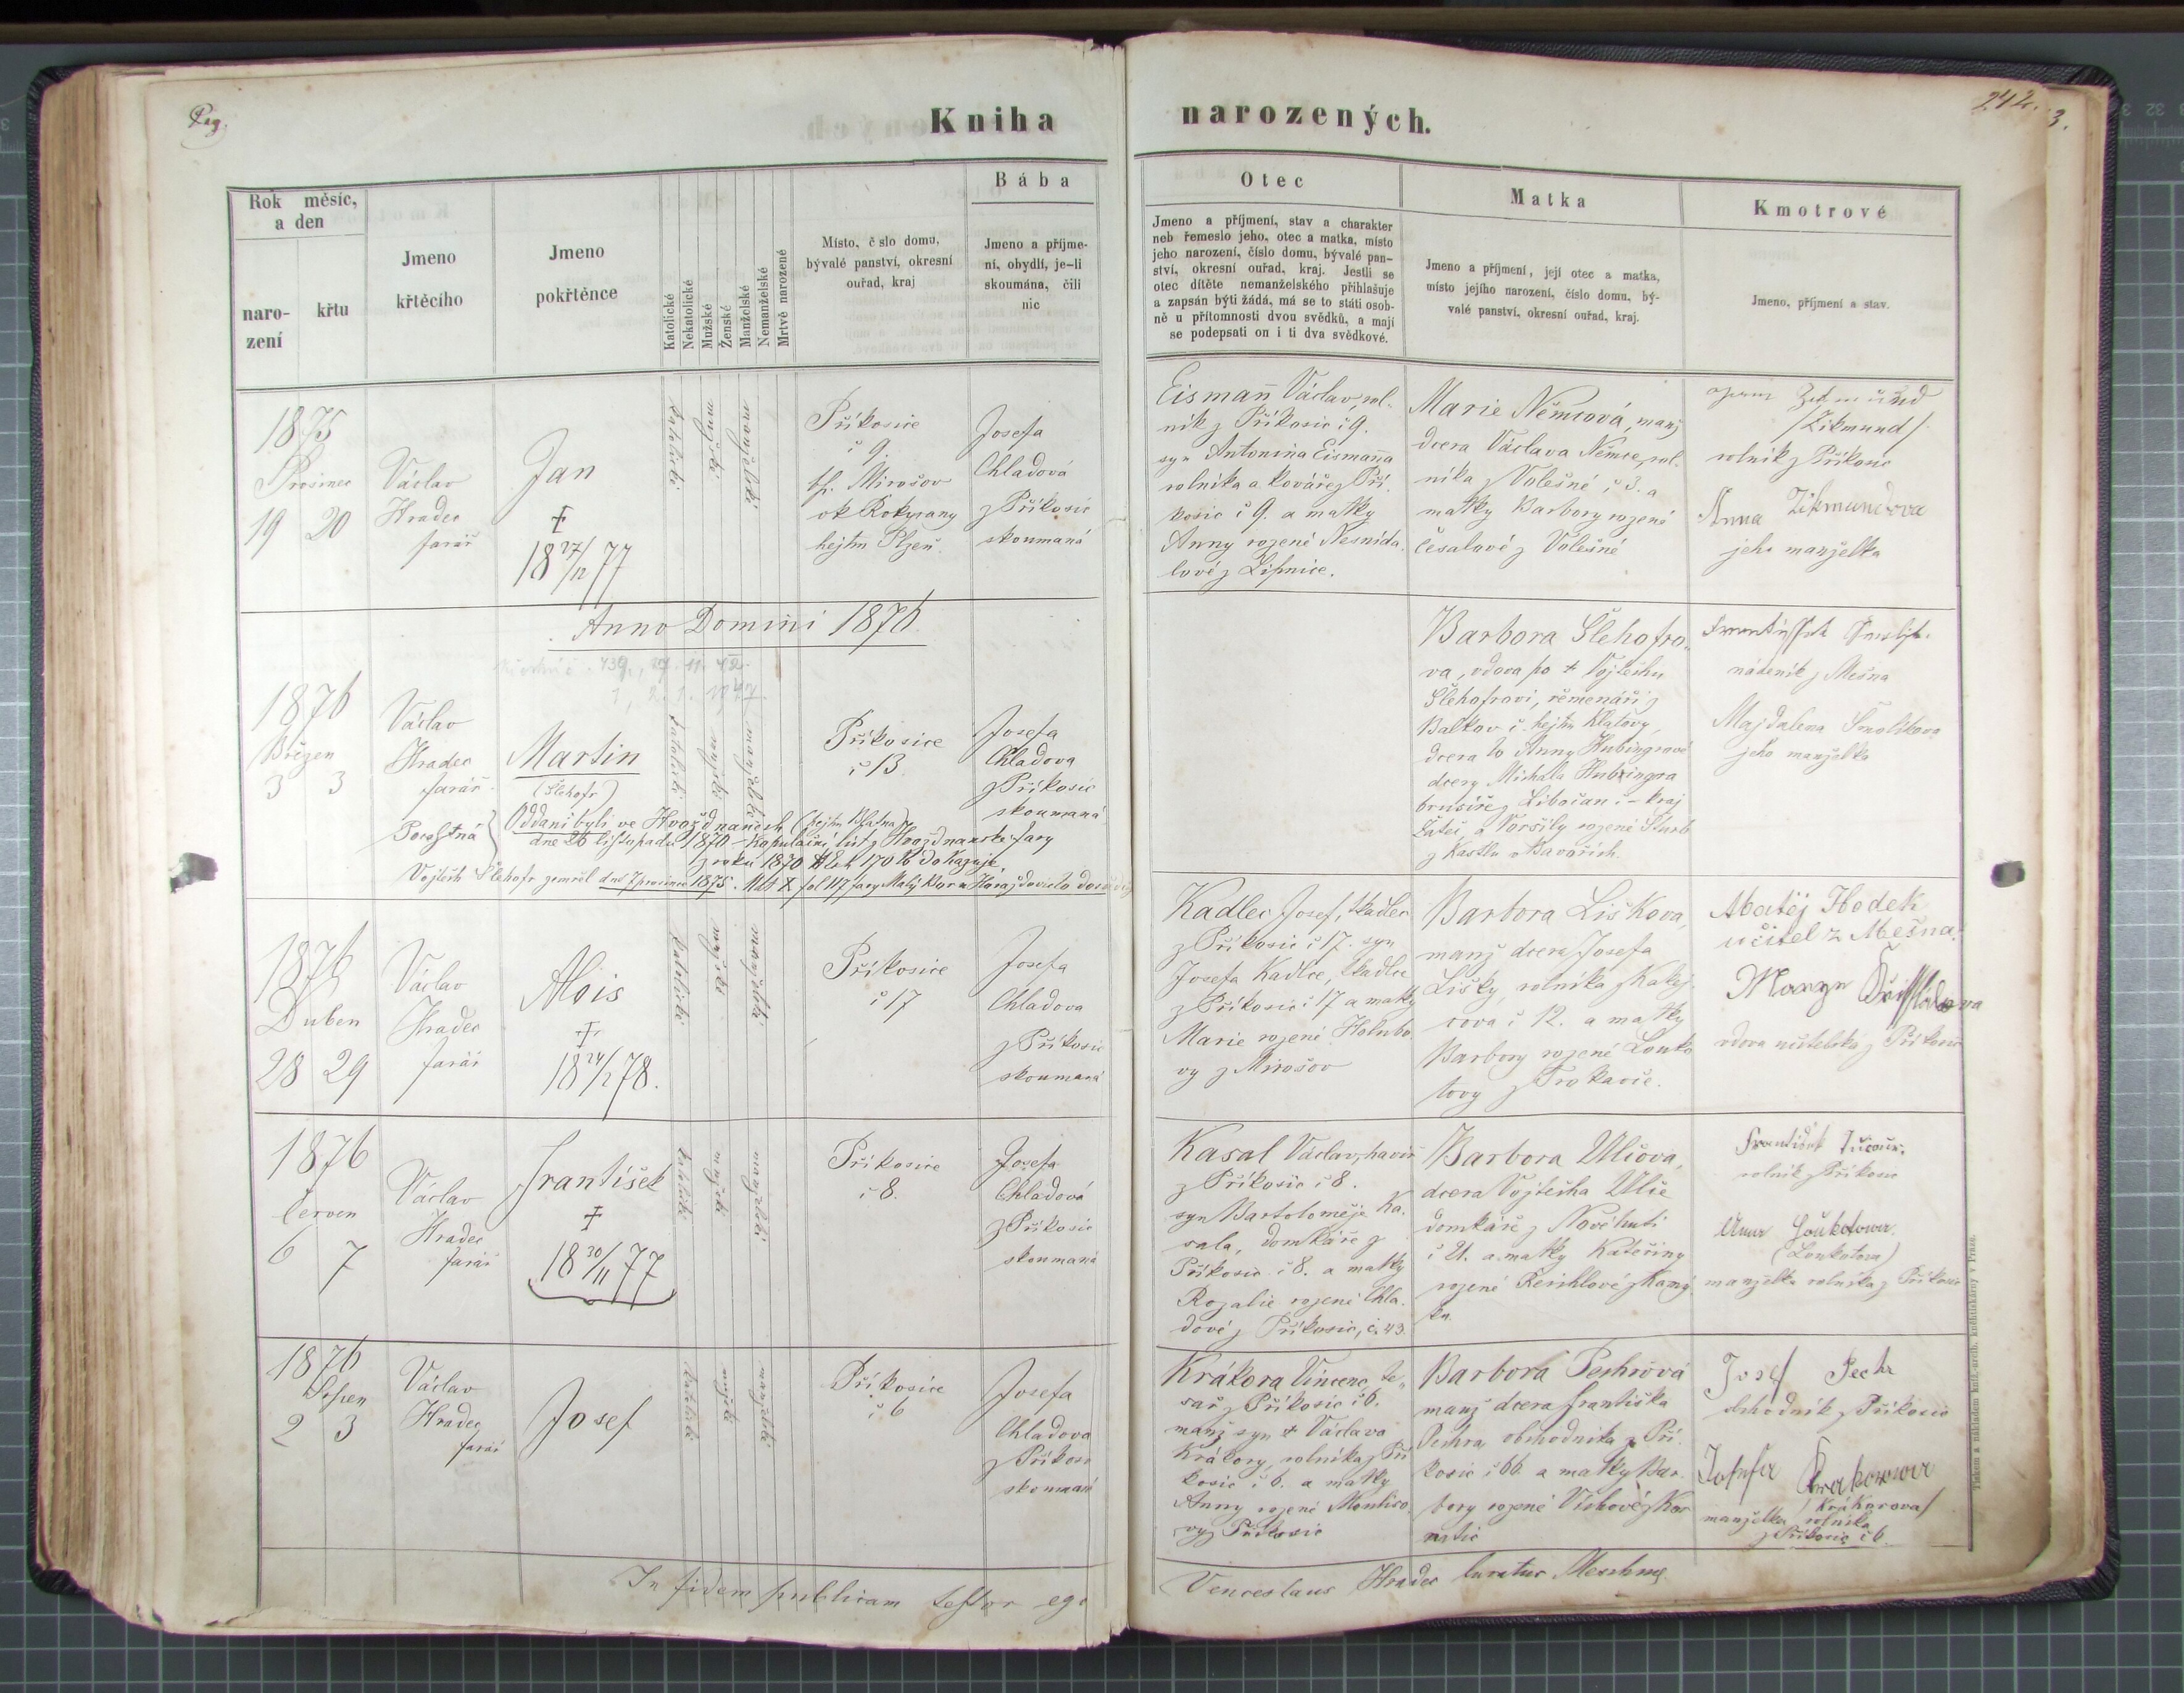 Pag.
Kniha
narozených.
242.
3.
Rok měsíc,
a den
naro-
zení
křtu
Jmeno
křtěcího
Jmeno
pokřtěnce
Katolické
Nekatolické
Mužské
Ženské
Manželské
Nemanželské
Mrtvě narozené
Místo, č slo domu,
bývalé panství, okresní
ouřad, kraj
Bába
Jmeno a příjme-
ní, obydlí, je-li
skoumána, čili
nic
Otec
Jmeno a příjmení, stav a charakter
neb řemeslo jeho, otec a matka, místo
jeho narození, číslo domu, bývalé pan-
ství, okresní ouřad, kraj. Jestli se
otec dítěte nemanželského přihlašuje
a zapsán býti žádá, má se to státi osob-
ně u přítomnosti dvou svědků, a mají
se podepsati on i ti dva svědkové.
Matka
Jmeno a příjmení, její otec a matka,
místo jejího narození, číslo domu, bý-
valé panství, okresní ouřad, kraj.
Kmotrové
Jmeno, příjmení a stav.
1875
Prosinec
19 20
Václav
Hradec
farář
Jan
†
18 27/12 77
katolické
mužské
manželské
Příkosice
č 9.
bp. Mirošov
ok Rokycany
hejtm Plzeň.
Josefa
Chladová
z Příkosic
skoumaná
Eismann Václav, rol-
ník z Příkosic č 9.
syn Antonina Eismanna
rolníka a kováře z Pří-
kosic č 9. a matky
Anny rozené Nesnída-
lové z Lipnice.
Marie Němcová, manž
dcera Václava Němce, rol-
níka z Volešné č 3. a
matky Barbory rozené
Česalové z Volešné
/Zikmund/
rolník z Příkosic
Anna Zikmundova
jeho manželka
Anno Domini 1876
1876
Březen
3 3
Václav
Hradec
farář
Martin
(Šlehofr)
katolické
mužské
manželské
Příkosice
č 13
Josefa
Chladova
z Příkosic
skoumaná
Oddáni byli ve Hvožďanech (hejtm Blatna)
dne 26 listopadu 1870 – Kopulační list z Hvožďanské fary
z roku 1870 # Exh 170 to dokazuje
Vojtěch Šlehofr zemřel dne 7 prosince 1875.
Barbora Šlehofro-
va, vdova po † Vojtěchu
Šlehofrovi, řemenáři z
Balkov č. hejtm Klatovy,
dcera to Anny Hubingrové
dcery Michala Hubingra
brusiče z Libočan č – kraj
Žateč, a Voršily rozené
z Kastlu v Bavořích.
nádeník z Mešna
Majdalena Smolíkova
jeho manželka
1876
Duben
28 29
Václav
Hradec
farář
Alois
†
18 24/1 78.
katolické
mužské
manželské
Příkosice
č 17
Josefa
Chladova
z Příkosic
skoumaná
Kadlec Josef, tkadlec
z Příkosic č 17. syn
Josefa Kadlce, tkadlce
z Příkosic č 17 a matky
Marie rozené Holubo
vy z Mirošov
Barbora Liškova,
manž dcera Josefa
Lišky, rolníka z Kakej-
cova č 12. a matky
Barbory rozené Louko
tovy z Trokavce.
Matěj Hodek
učitel z Mešna.
vdova učitelská z Příkosic
1876
Červen
6 7
Václav
Hradec
farář
František
†
18 30/11 77
katolické
mužské
manželské
Příkosice
č 8.
Josefa
Chladová
z Příkosic
skoumaná
Kasal Václav, havíř
z Příkosic č 8.
syn Bartoloměje Ka-
sala, domkáře z
Příkosic č 8. a matky
Rozalie rozené Chla-
dové z Příkosic, č. 43.
Barbora Ulčova,
dcera Vojtěcha Ulče
domkáře z Nové huti
č 21. a matky Kateřiny
rozené Reichlové z Kamý
ku.
rolník z Příkosic
Anna Loukotowa.
(Loukotova)
manželka rolníka z Příkosic
1876
Srpen
2 3
Václav
Hradec
farář
Josef
katolické
mužské
manželské
Příkosice
č 6
Josefa
Chladova
z Příkosi
skoumaná
Krákora Vincenc, te-
sař z Příkosic č 6.
manž syn † Václava
Krákory, rolníka z Pří
kosic č 6. a matky
Anny rozené
vy z Příkosic
Barbora Pechrová
manž dcera Františka
Pechra obchodníka z Pří-
kosic č 66. a matky Bar-
bory rozené Víchové z Kor
natic
Josef Pechr
obchodník z Příkosic
Krakorowa
/Krákorova/
manželka rolníka
z Příkosic č 6.
In fidem publicam testor ego
Venceslaus Hradec Curatus
Tiskem a nákladem kníž. arcib. knihtiskárny v Praze.